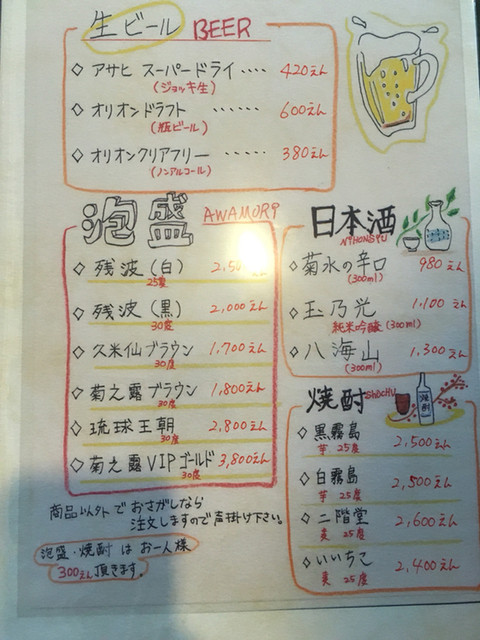 生ビール BEER
◇ アサヒ スーパードライ ‥‥ 420えん
(ジョッキ生)
◇ オリオンドラフト ‥‥‥ 600えん
(瓶ビール)
◇ オリオンクリアフリー ‥‥‥ 380えん
(ノンアルコール)
泡盛 AWAMORI
◇ 残波(白)
25度
◇ 残波(黒) 2,000えん
30度
◇ 久米仙ブラウン 1,700えん
30度
◇ 菊之露ブラウン 1,800えん
30度
◇ 琉球王朝 2,800えん
30度
◇ 菊之露VIPゴールド 3,800えん
30度
商品以外でおさがしなら
注文しますので声掛け下さい。
泡盛・焼酎はお一人様
300えん頂きます。
日本酒
NIHONSYU
◇ 菊水の辛口 980えん
(300ml)
◇ 玉乃光 1,100えん
純米吟醸(300ml)
◇ 八海山 1,300えん
(300ml)
焼酎 SHOCHU
焼酎
◇ 黒霧島 2,500えん
芋 25度
◇ 白霧島 2,500えん
芋 25度
◇ 二階堂 2,600えん
麦 25度
◇ いいちこ 2,400えん
麦 25度